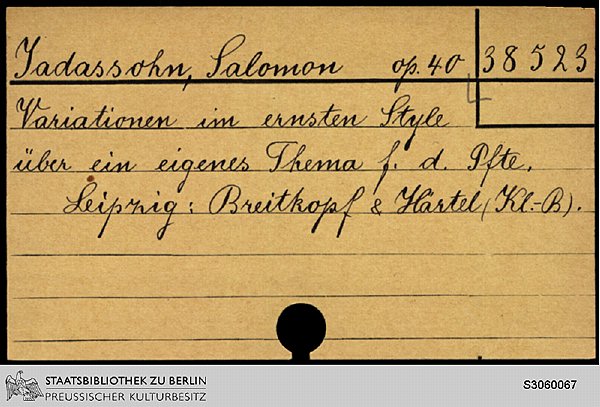 Jadassohn, Salomon op. 40 38523
Variationen im ernsten Style
über ein eigenes Thema f. d. Pfte.
Leipzig: Breitkopf & Härtel (Kl.-B).
STAATSBIBLIOTHEK ZU BERLIN
PREUSSISCHER KULTURBESITZ
S3060067